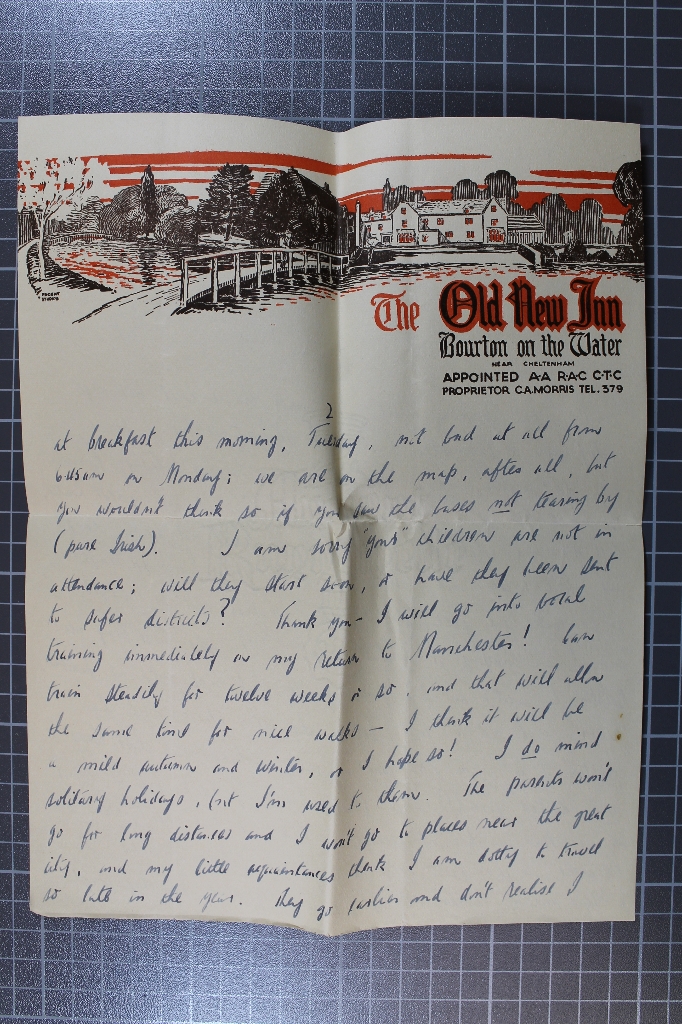 The Old New Inn
Bourton on the Water
NEAR CHELTENHAM
APPOINTED A·A R·A·C C·T·C
PROPRIETOR C.A.MORRIS TEL. 379
2
at breakfast this morning, Tuesday, not bad at all from
6.45am on Monday; we are on the map, after all, but
you wouldn't think so if you saw the buses not tearing by
(pure Irish). I am sorry "your" children are not in
attendance; will they start soon, or have they been sent
to safer districts? Thank you – I will go into vocal
training immediately on my return to Manchester! Can
train steadily for twelve weeks or so, and that will allow
the same time for nice walks – I think it will be
a mild autumn and winter, or I hope so! I do mind
solitary holidays, but I'm used to them. The parents won't
go for long distances and I won't go to places near the great
city, and my little acquaintances think I am dotty to travel
so late in the year. They go earlier and don't realise I